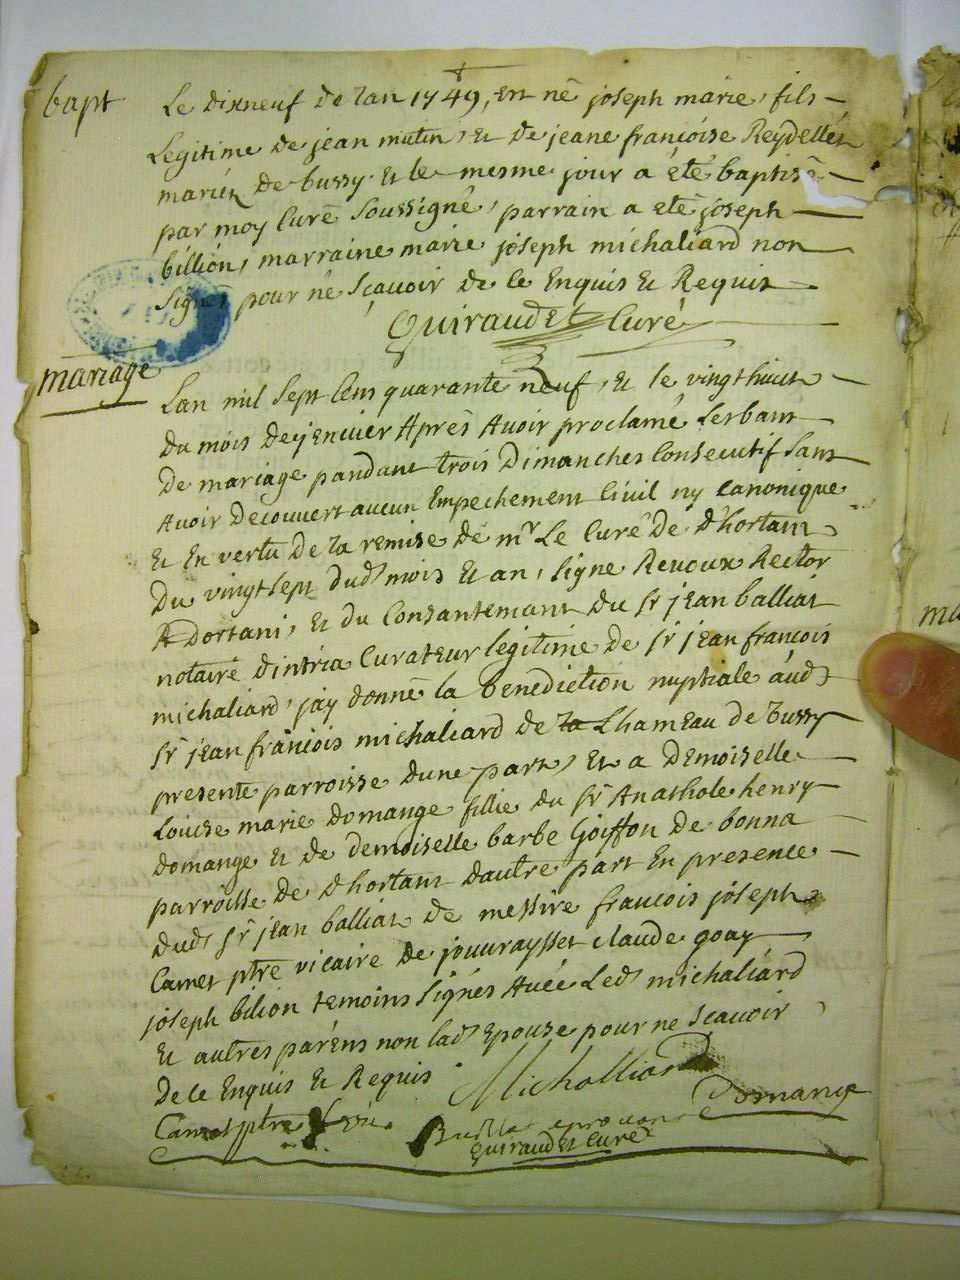 bapt
Le dixneuf de lan 1749, est né joseph marie, fils
Legitime de jean mutin, et de jeane françoise Reydellet
mariéz de bussy et le mesme jour a été baptisé
par moy Curé soussigné, parrain a eté joseph
billion, marraine marie joseph michaliard non
signés pour ne sçauoir de ce Enquis et Requis
Guiraudet Curé
mariage
Lan mil sept cens quarante neuf, et le vingthuict
du mois dejenuier Après Auoir proclamé Les bans
De mariage pandant trois Dimanches Consecutif sans
Auoir Decouvert aucun Empechement Ciuil ny canonique
Et En vertu De la remise de mr Le Curé de Dhortant
Du vingt sept dud mois et an, signe Reuoux Rector
A Dortani, et du Consantemant du sr jean balliat
notaire dintria Curateur legitime de sr jean francois
michaliard, jay donné la benediction nuptiale áud
sr jean francois michaliard de la Lhameau de bussy
presente parroisse dune part, et a Demoiselle
Louise marie domange fillie du sr Anathole henry
domange et de demoiselle barbe Goiffon de bonna
parroisse de dhortant dautre part En presence
dud sr jean balliat de messire francois joseph
Camet ptre vicaire de claude goay
joseph bilion temoins signés Auéc Led michaliard
Et autres paréns non lad Epouse pour ne scauoir
De ce Enquis et Requis Michalliard
Camet ptre Domange
Guiraudet Curé